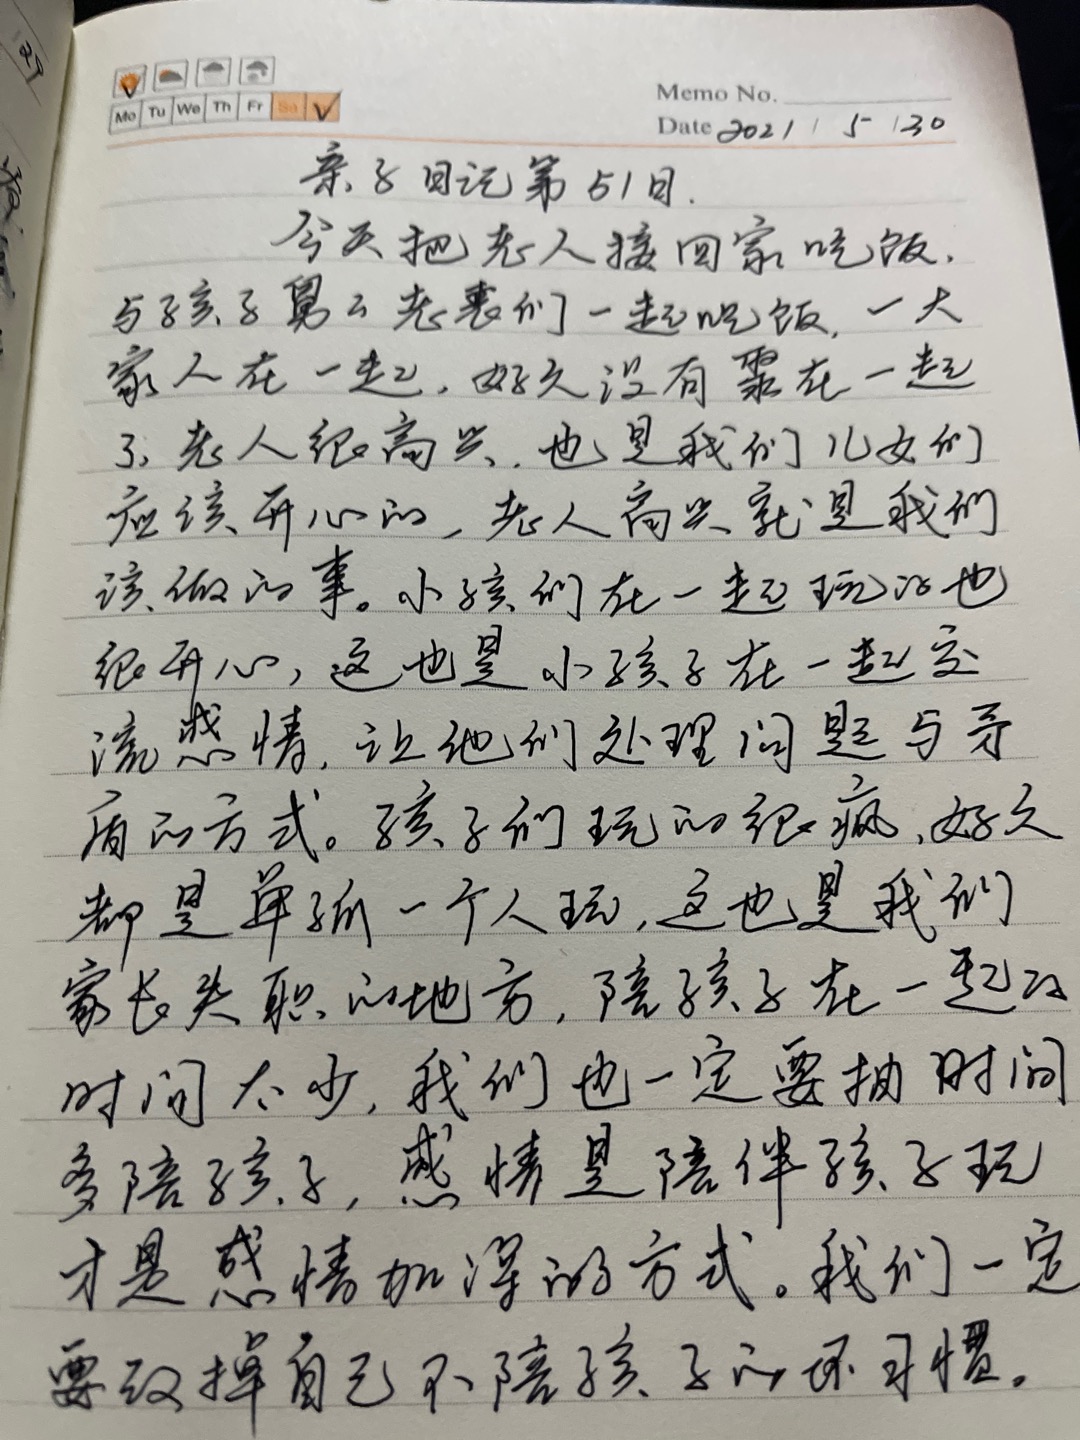 29
Mo Tu We Th Fr Sa
Memo No.
Date 2021 / 5 / 30
亲子日记第51日.
今天把老人接回家吃饭.
与孩子舅々老表们一起吃饭,一大
家人在一起,好久没有聚在一起
了,老人很高兴,也是我们儿女们
应该开心的,老人高兴就是我们
该做的事。小孩们在一起玩的也
很开心,这也是小孩子在一起交
流感情,让他们处理问题与矛
盾的方式。孩子们玩的很疯,好久
都是单独一个人玩,这也是我们
家长失职的地方,陪孩子在一起的
时间太少,我们也一定要抽时间
多陪孩子,感情是陪伴孩子玩
才是感情加深的方式。我们一定
要改掉自己不陪孩子的坏习惯。